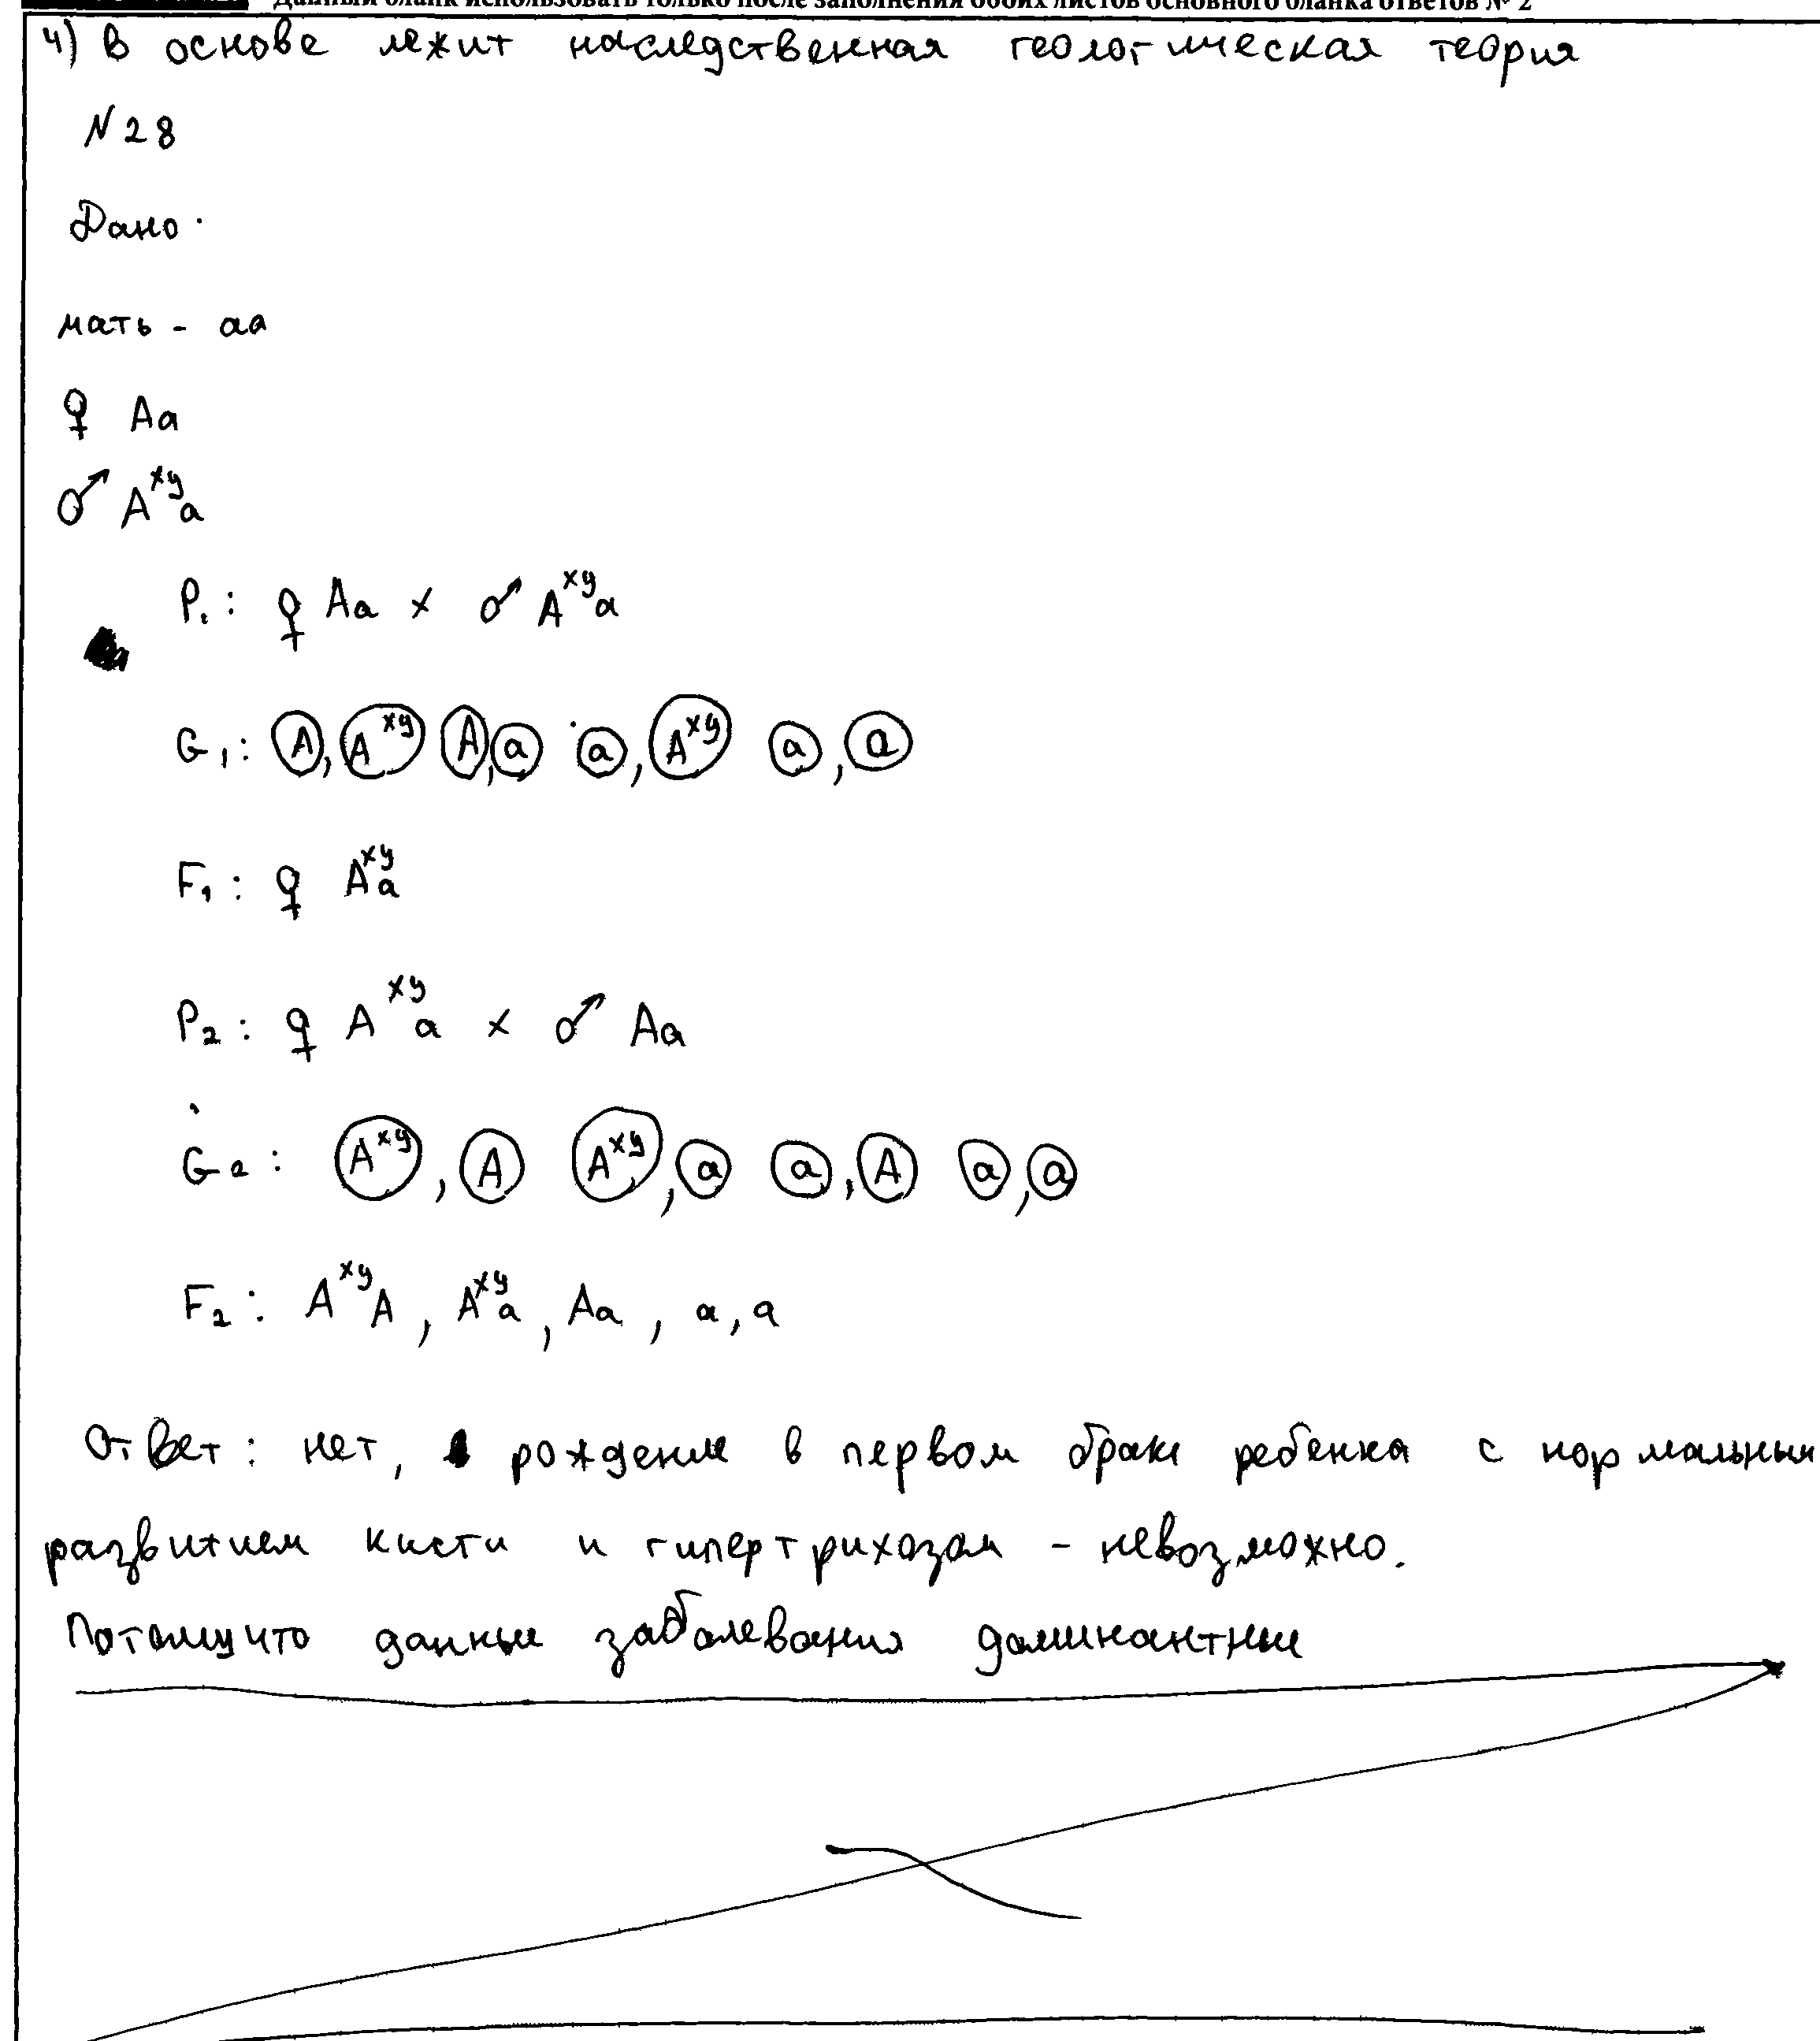 Данный бланк использовать только после заполнения обоих листов основного бланка ответов № 2
4) В основе лежит наследственная геологическая теория
N 28
Дано.
мать - аа
♀ Аа
♂ A^xy a
P₁: ♀ Аа × ♂ A^xy a
G₁: (A), (A^xy) (A), (a) (a), (A^xy) (a), (a)
F₁: ♀ A^xy a
P₂: ♀ A^xy a × ♂ Aa
G₂: (A^xy), (A) (A^xy), (a) (a), (A) (a), (a)
F₂: A^xy A, A^xy a, Aa, a, a
Ответ: нет, рождение в первом браке ребенка с нормальным
развитием кисти и гипертрихозом - невозможно.
Потомучто данные заболевания доминантные